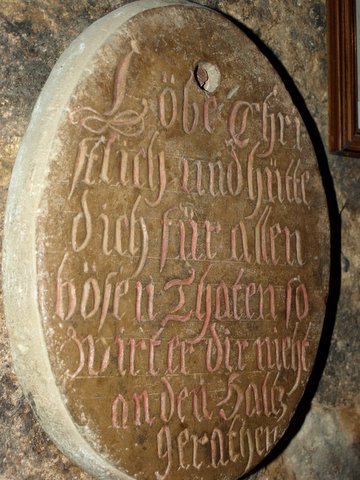 Löbe Chri
stlich und hütte
dich für allen
bösen Thaten so
wirt er dir nicht
an den Haltz
gerathen